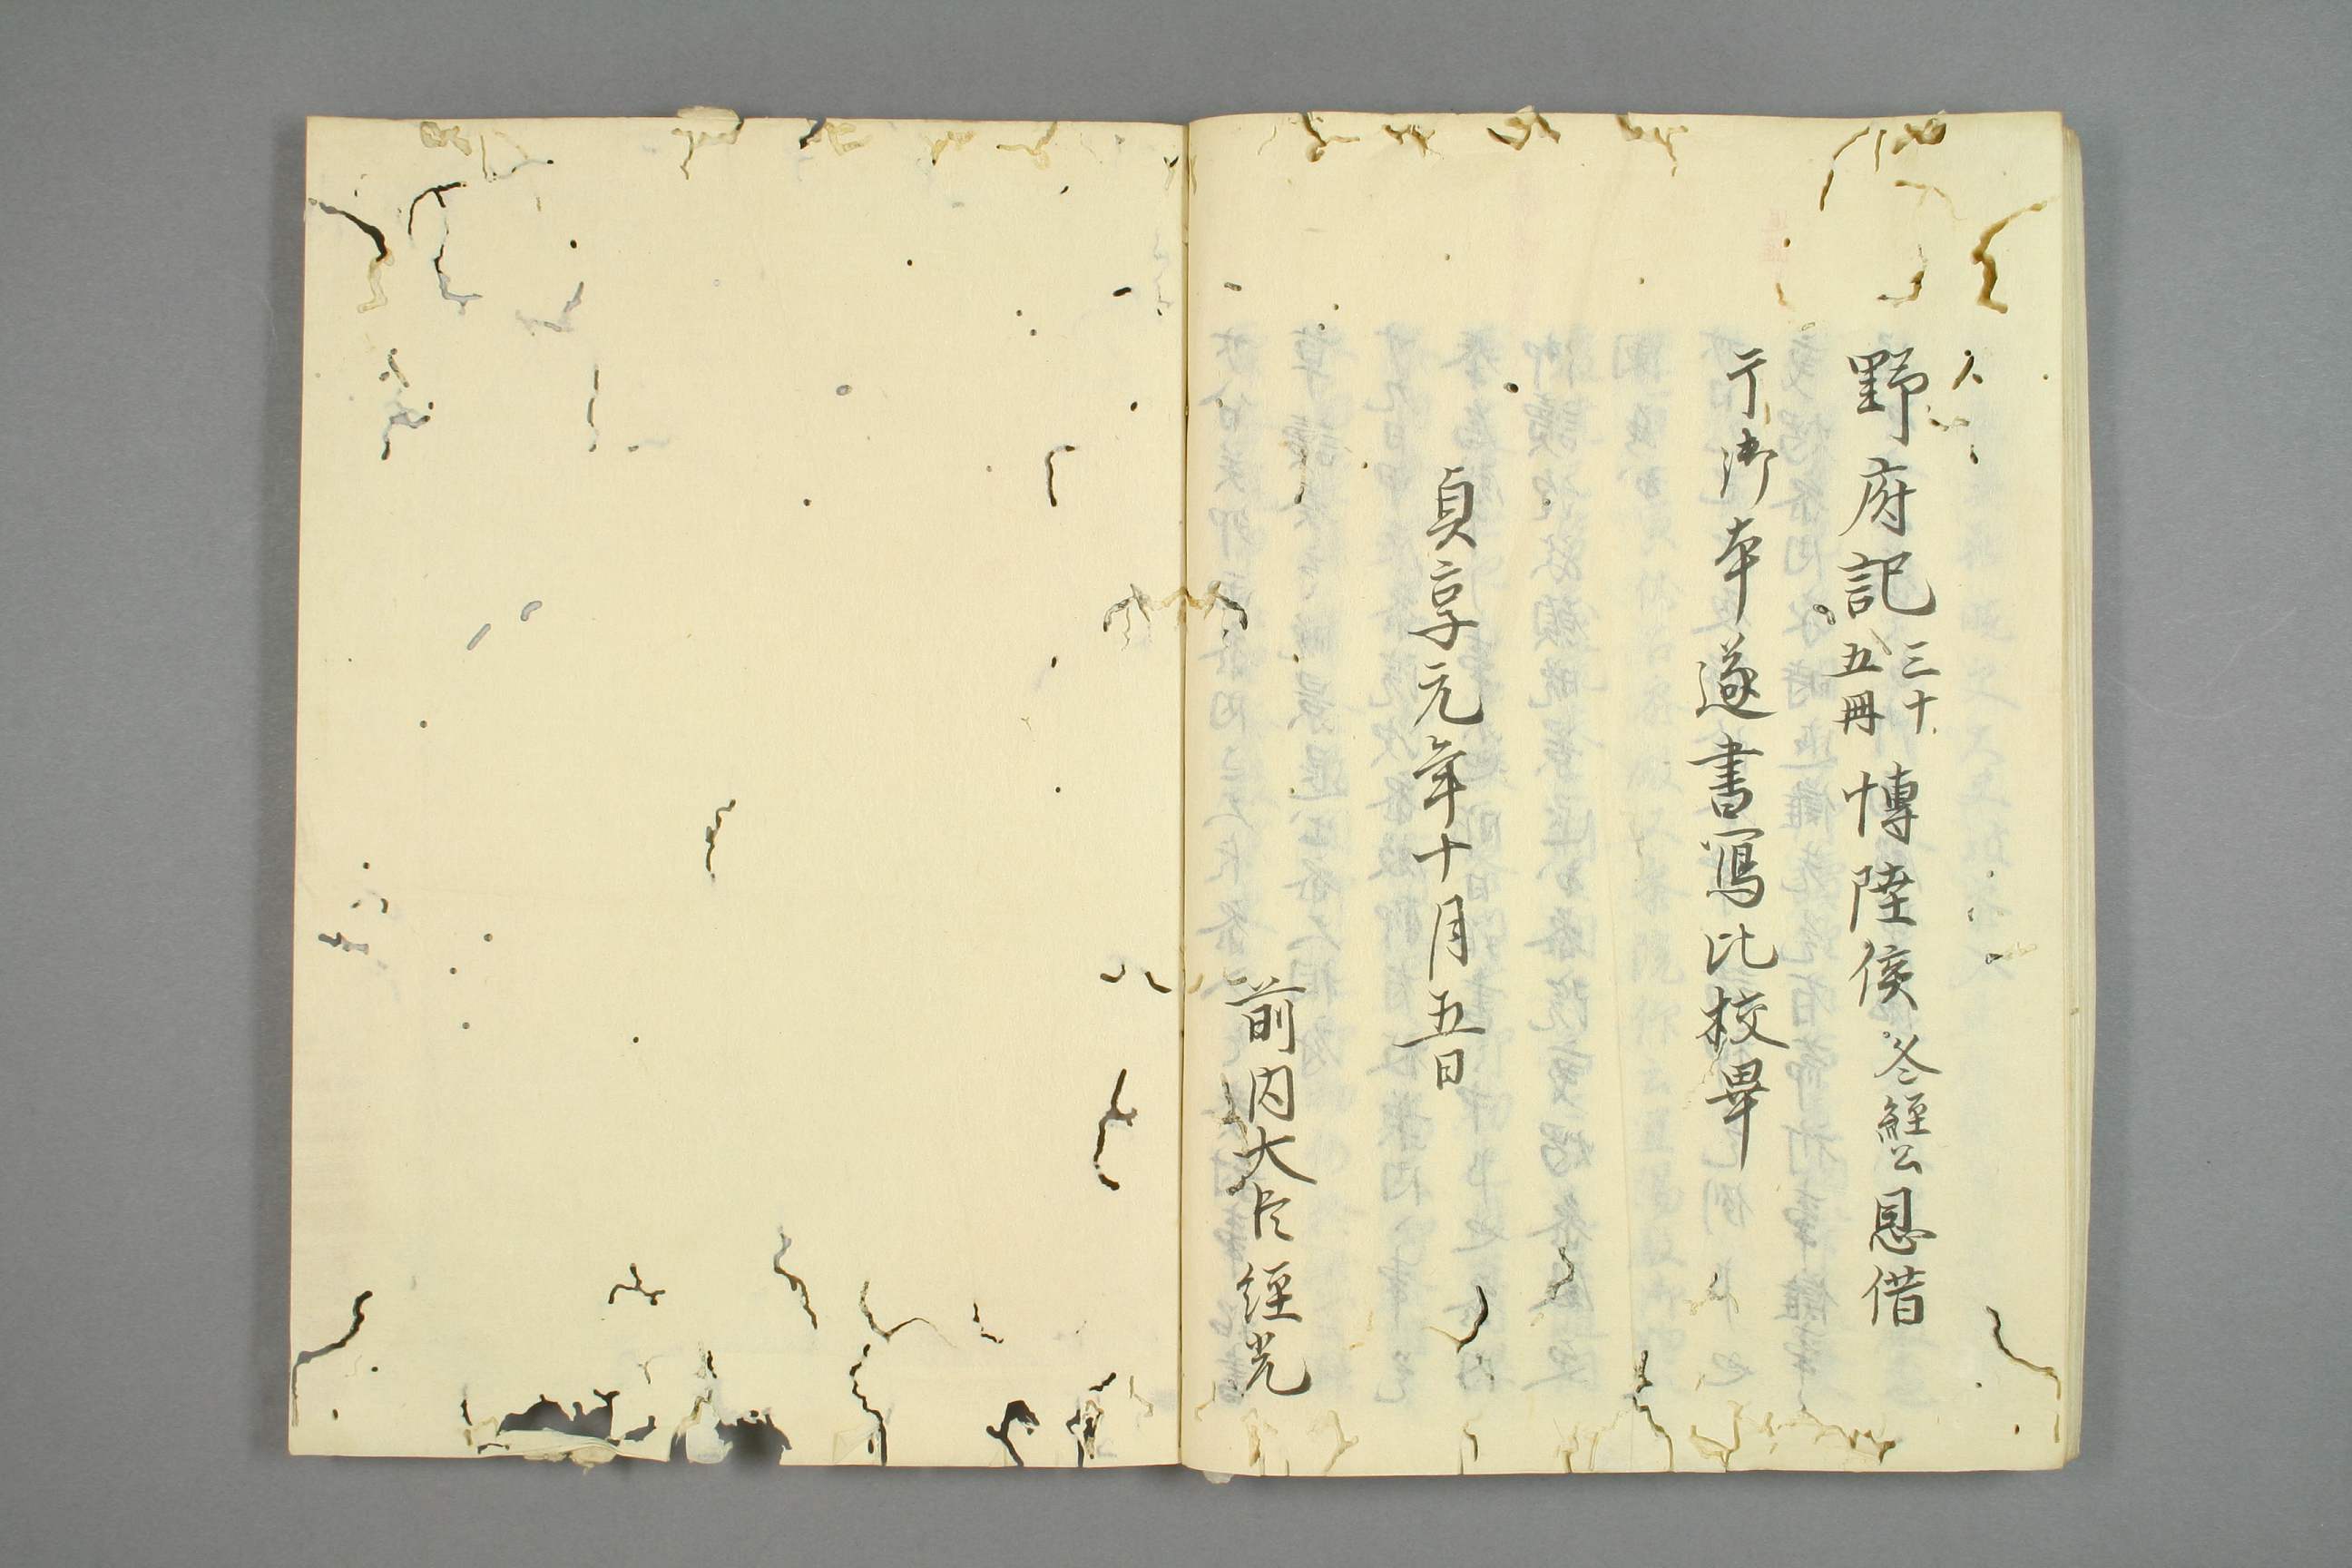 野府記三十五冊博陸侯冬経公恩借
于御本遂書寫比校畢
貞享元年十月五日
前内大臣経光